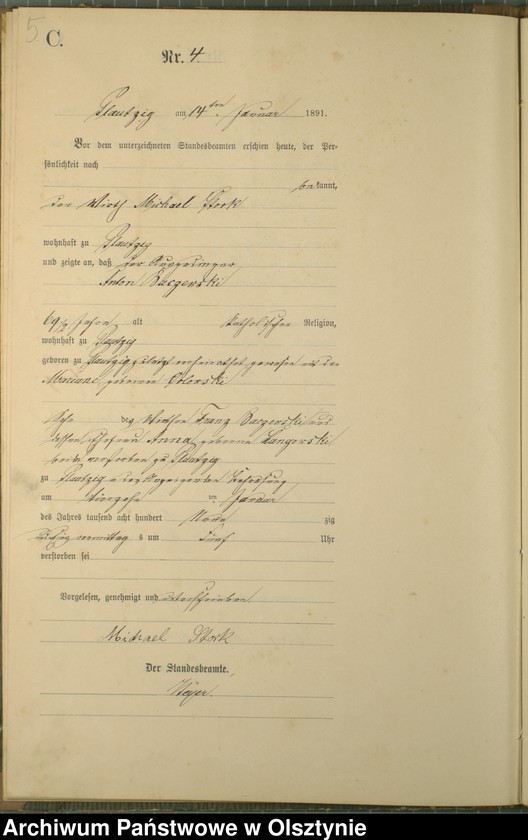 5
C.
Nr. 4.
Plautzig am 14ten Januar 1891.
Vor dem unterzeichneten Standesbeamten erschien heute, der Per-
sönlichkeit nach
bekannt,
der Wirth Michael Stork
wohnhaft zu Plautzig
und zeigte an, daß der
Anton
69 1/2 Jahre alt katholischer Religion,
wohnhaft zu Plautzig
geboren zu Plautzig, zuletzt verheirathet gewesen mit der
geborenen
Sohn des Wirthen Franz und
dessen Ehefrau Anna geborene
beide verstorben zu Plautzig
zu Plautzig in des Behausung
am vierzehn ten Januar
des Jahres tausend acht hundert neun zig
und ein vormittag s um fünf Uhr
verstorben sei
Vorgelesen, genehmigt und unterschrieben
Michael Stork
Der Standesbeamte.
Archiwum Państwowe w Olsztynie